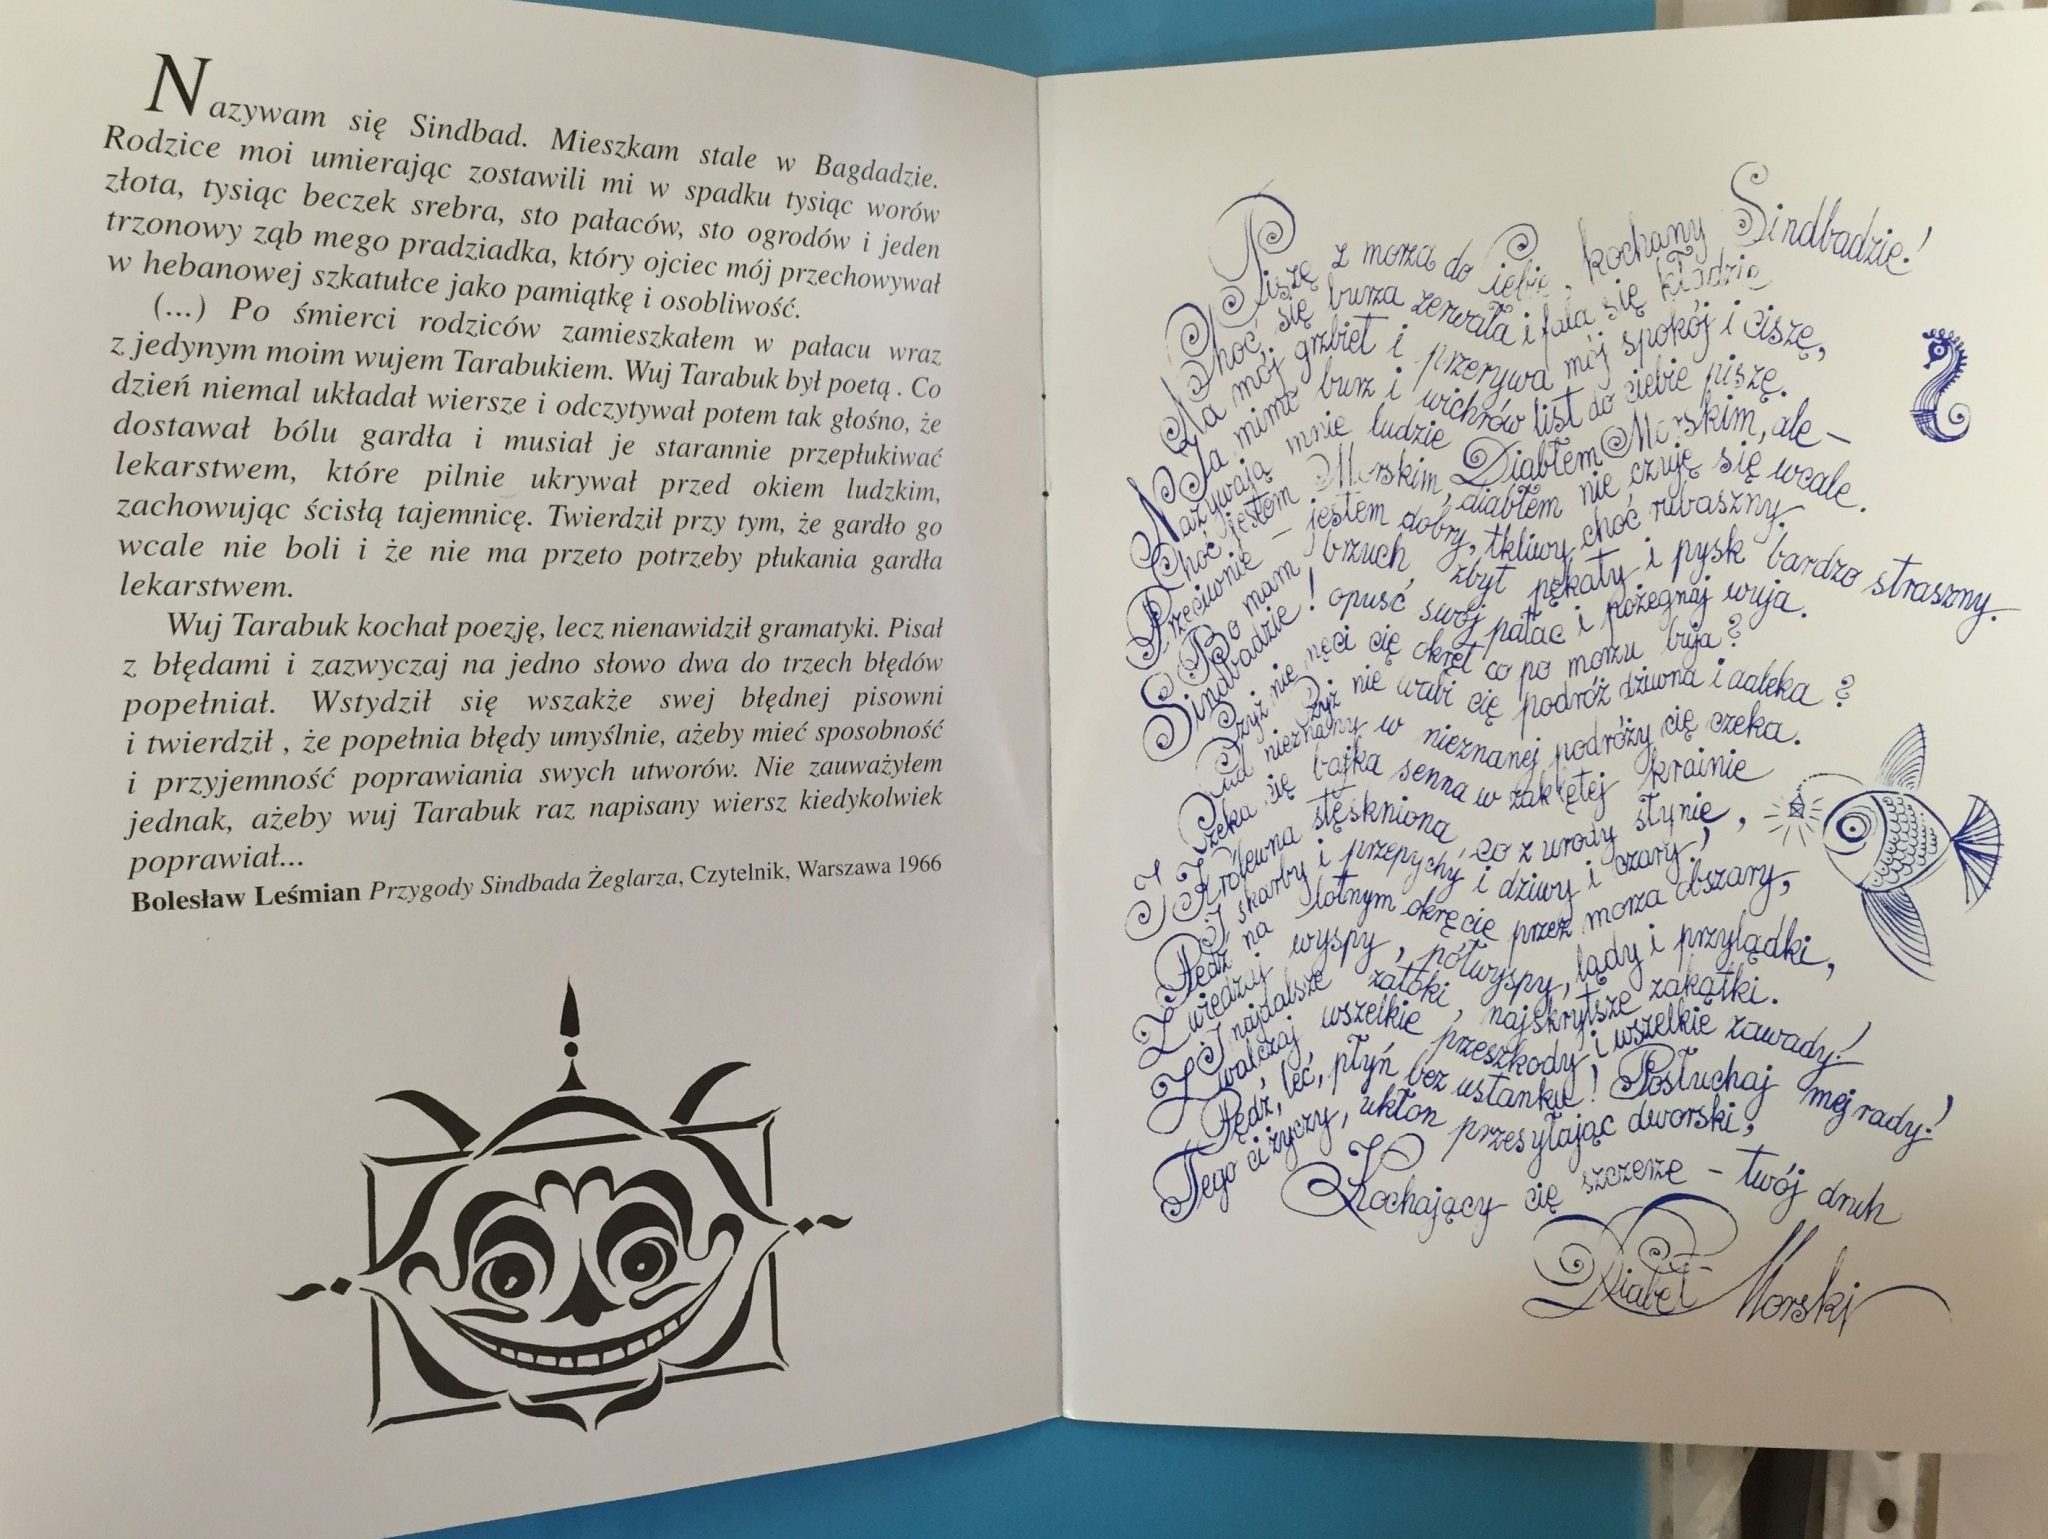 Nazywam się Sindbad. Mieszkam stale w Bagdadzie.
Rodzice moi umierając zostawili mi w spadku tysiąc worów
złota, tysiąc beczek srebra, sto pałaców, sto ogrodów i jeden
trzonowy ząb mego pradziadka, który ojciec mój przechowywał
w hebanowej szkatułce jako pamiątkę i osobliwość.
(...) Po śmierci rodziców zamieszkałem w pałacu wraz
z jedynym moim wujem Tarabukiem. Wuj Tarabuk był poetą . Co
dzień niemal układał wiersze i odczytywał potem tak głośno, że
dostawał bólu gardła i musiał je starannie przepłukiwać
lekarstwem, które pilnie ukrywał przed okiem ludzkim,
zachowując ścisłą tajemnicę. Twierdził przy tym, że gardło go
wcale nie boli i że nie ma przeto potrzeby płukania gardła
lekarstwem.
Wuj Tarabuk kochał poezję, lecz nienawidził gramatyki. Pisał
z błędami i zazwyczaj na jedno słowo dwa do trzech błędów
popełniał. Wstydził się wszakże swej błędnej pisowni
i twierdził , że popełnia błędy umyślnie, ażeby mieć sposobność
i przyjemność poprawiania swych utworów. Nie zauważyłem
jednak, ażeby wuj Tarabuk raz napisany wiersz kiedykolwiek
poprawiał...
Bolesław Leśmian Przygody Sindbada Żeglarza, Czytelnik, Warszawa 1966
Piszę z morza do Ciebie, kochany Sindbadzie!
Choć się burza zerwała i fala się kładzie
Na mój grzbiet i przerywa mój spokój i ciszę,
Ja mimo burz i wichrów list do ciebie piszę.
Nazywają mnie ludzie Diabłem Morskim, ale –
Choć jestem Morskim, diabłem nie czuję się wcale.
Przeciwnie – jestem dobry, tkliwy choć rubaszny.
Bo mam brzuch zbyt pękaty i pysk bardzo straszny.
Sindbadzie! opuść swój pałac i pożegnaj wuja.
Czyż nie nęci cię okręt co po morzu buja?
Czyż nie wabi cię podróż dziwna i daleka?
Cud nieznany w nieznanej podróży cię czeka.
Czeka cię bajka senna w zaklętej krainie
I Królewna stęskniona co z urody słynie,
I skarby i przepychy i dziwy i czary!
Pędź na lotnym okręcie przez morza obszary,
Zwiedzaj wyspy, półwyspy, lądy i przylądki,
I najdalsze zatoki, najskrytsze zakątki.
Zwalczaj wszelkie przeszkody i wszelkie zawady!
Pędź, leć, płyń bez ustanku! Posłuchaj mej rady!
Tego ci życzy, ukłon przesyłając dworski,
Kochający cię szczerze – twój druh
Diabeł Morski